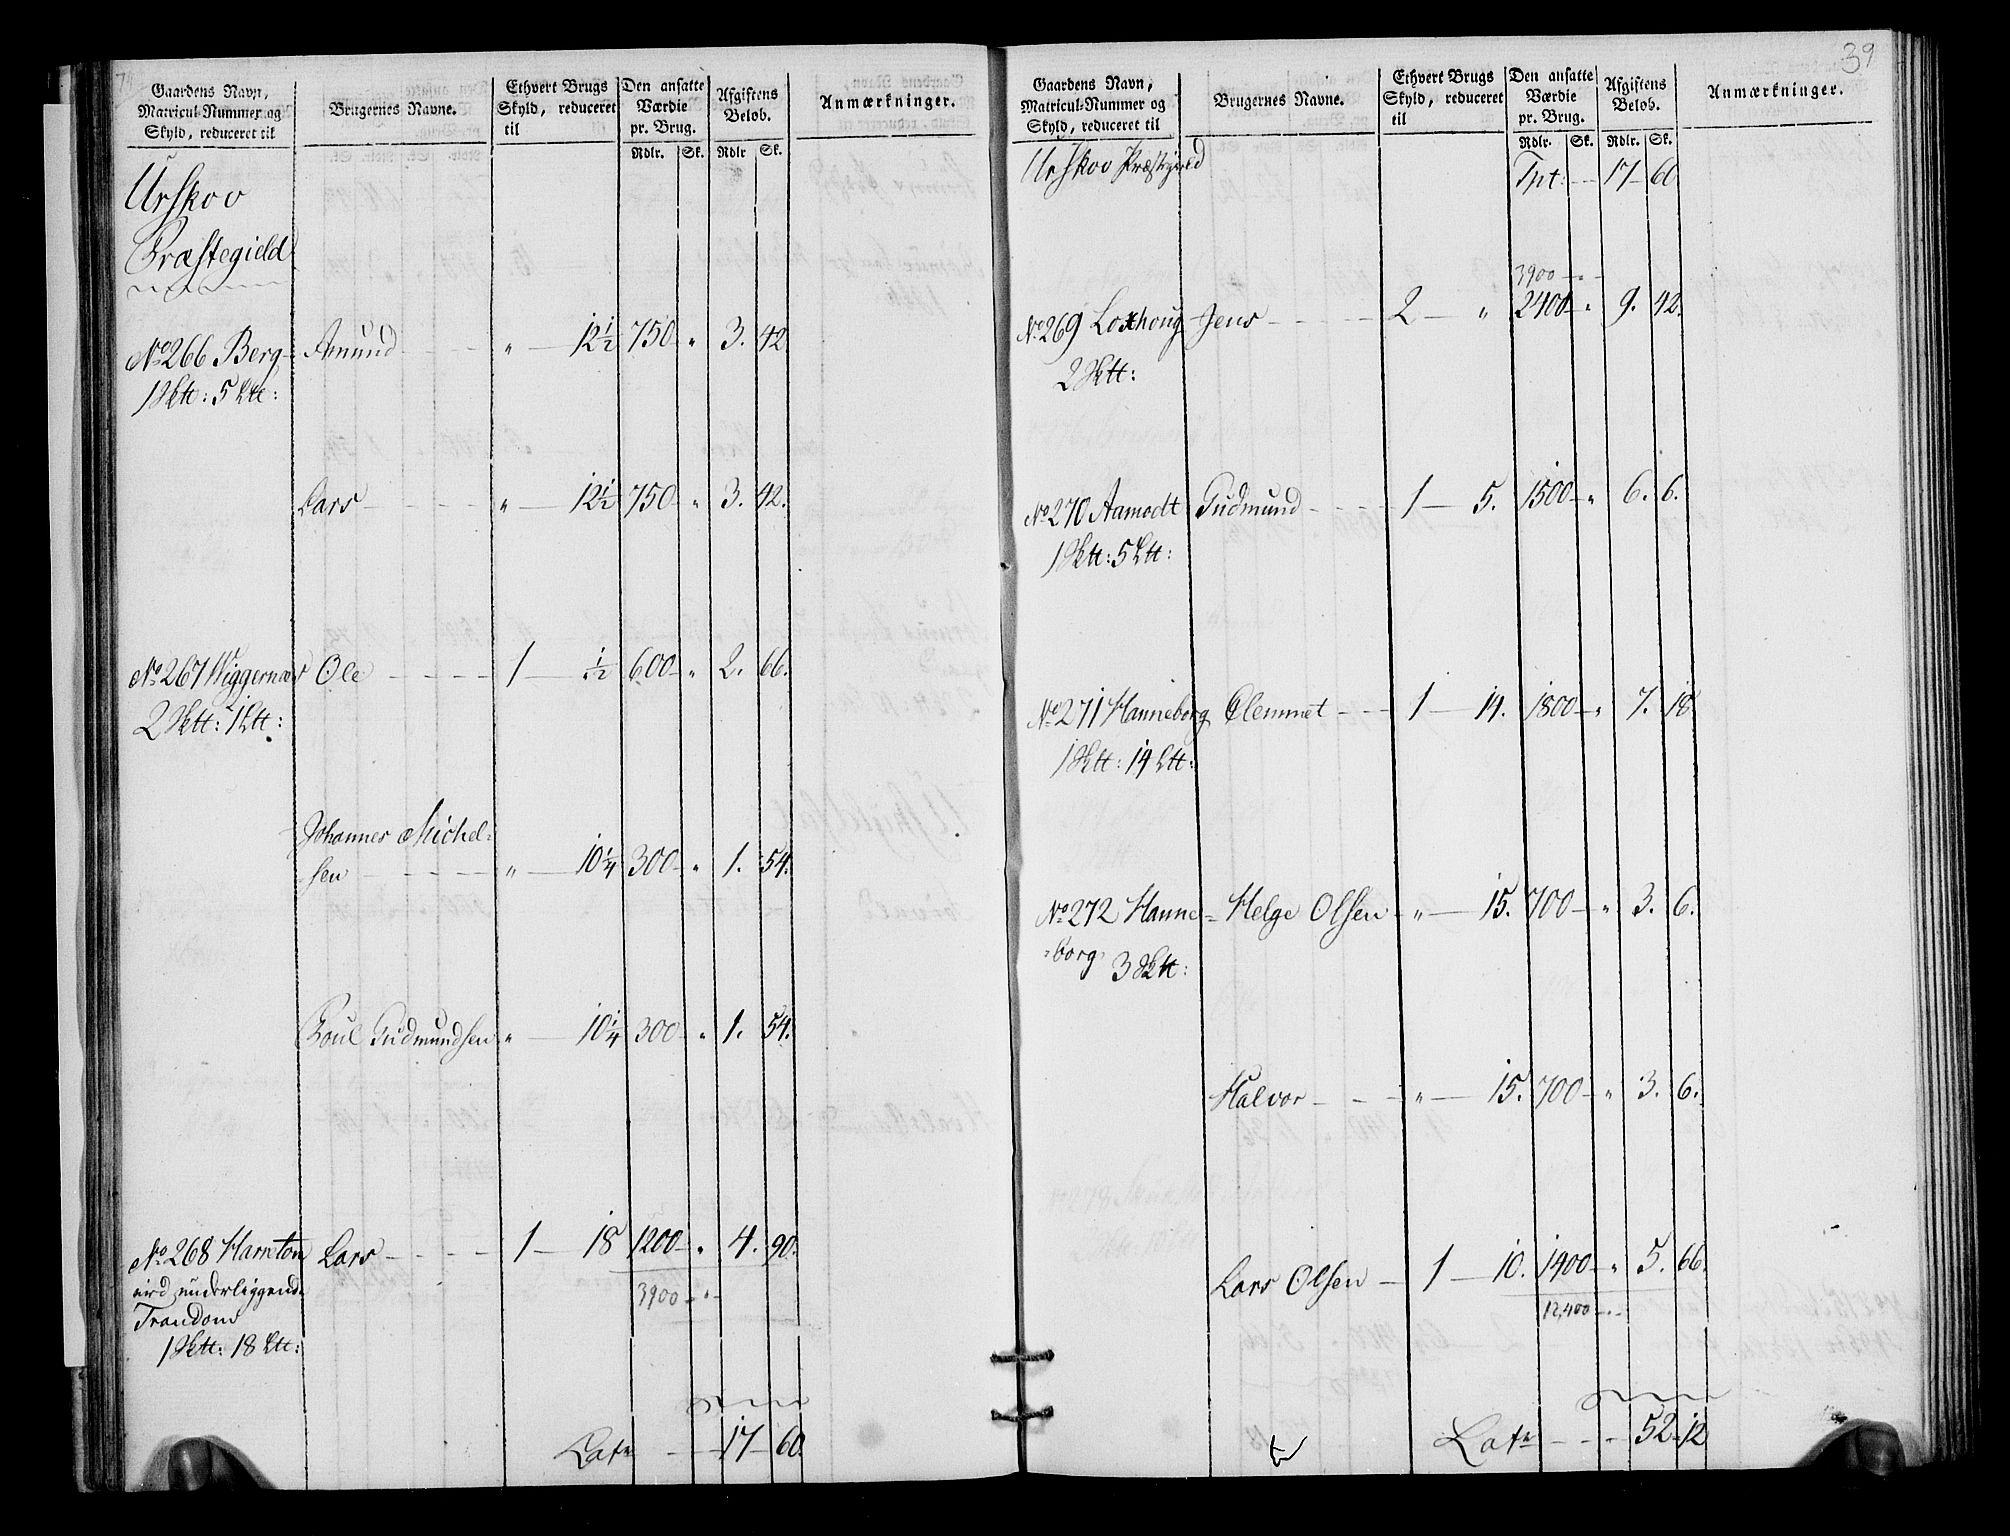 Gaardens Navn, Matricul-Nummer og Skyld, reduceret til | Brugernes Navne. | Ethvert Brugs Skyld, reduceret til | Den ansatte Værdie pr. Brug. | Afgiftens Beløb. | Anmærkninger.
Rdlr. Sk. Rdlr Sk.
Urskov
Præstegield
No 266 Berg Amund - - - " — 12 1/2 750 " 3. 42.
1 Sktt: 5 Ltt:
Lars - - - - " — 12 1/2 750 " 3. 42.
No 267 Wiggernæs Ole - - - - 1 — 1/2 600 " 2. 66.
2 Sktt: 1 Ltt:
Johannes Michel=
sen - - - - - " — 10 1/4 300 " 1. 54.
Poul Gudmundsen " — 10 1/4 300 " 1. 54.
No 268 Harnton Lars - - - - 1 — 18 1200 " 4. 90.
underliggende 3900 - " -
Trandom
1 Sktt: 18 Ltt:
Latr - - - 17 - 60.
39
Gaardens Navn, Matricul-Nummer og Skyld, reduceret til | Brugernes Navne. | Ethvert Brugs Skyld, reduceret til | Den ansatte Værdie pr. Brug. | Afgiftens Beløb. | Anmærkninger.
Rdlr. Sk. Rdlr. Sk.
Urskov Præstgield Tpt: - - 17 - 60
3900 - " -
No 269 Loxhoug Jens - - - - - 2 — " 2400 " 9. 42.
2 Sktt:
No 270 Aamodt Gudmund - - - - 1 — 5. 1500 " 6. 6.
1 Sktt: 5 Ltt:
No 271 Hanneborg Clemmet - - - 1 — 14. 1800 " 7. 18
1 Sktt: 14 Ltt:
No 272 Hanne= Helge Olsen - " — 15. 700 " 3. 6.
=borg 3 Sktt:
Halvor - - - - " — 15. 700 " 3. 6.
Lars Olsen — 1 — 10. 1400 " 5. 66.
12,400 - - -
Latr - - - 52 - 12